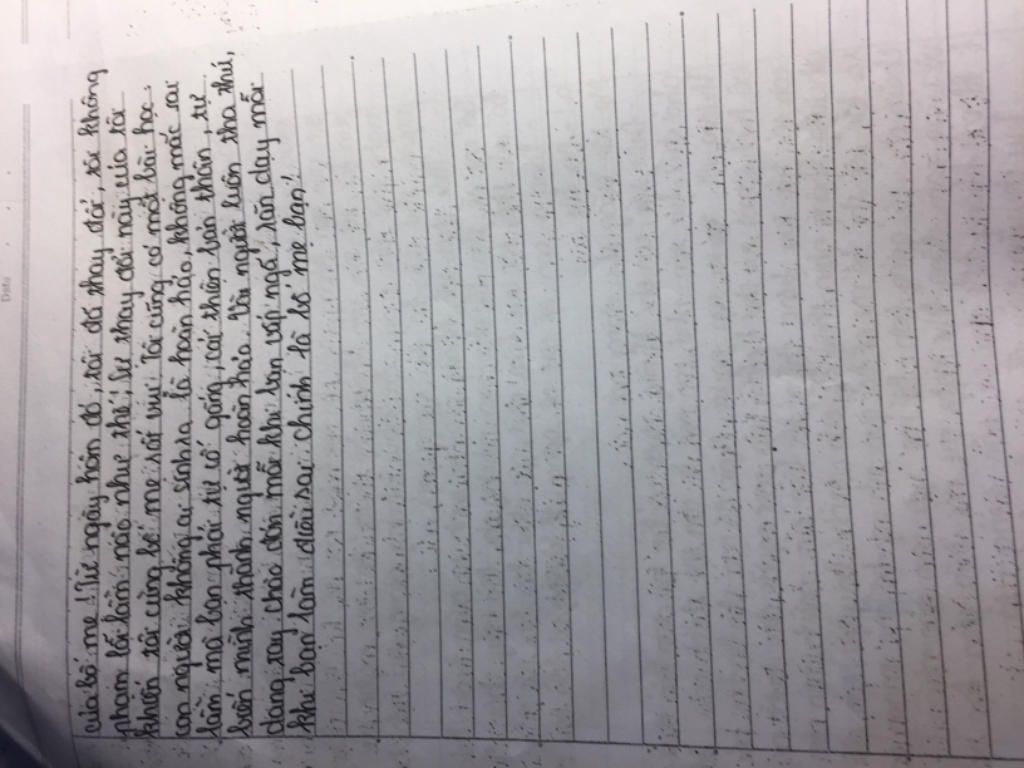 Date
của bố mẹ! Từ ngày hôm đó, tôi đã thay đổi, tôi không
phạm lỗi lầm nào như thế, sự thay đổi này của tôi
khiến tôi cùng bố mẹ rất vui. Tôi cũng có một bài học
con người không ai sinh ra là hoàn hảo, không mắc sai
lầm mà bạn phải tự cố gắng, cải thiện bản thân, tự
biến mình thành người hoàn hảo. Và người luôn tha thứ,
dang tay chào đón mỗi khi bạn vấp ngã, răn dạy mỗi
khi bạn làm điều sai chính là bố mẹ bạn!